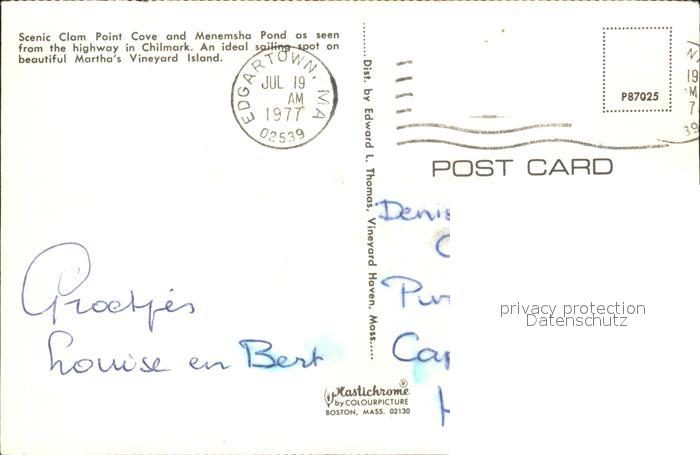 Scenic Clam Point Cove and Menemsha Pond as seen
from the highway in Chilmark. An ideal sailing spot on
beautiful Martha's Vineyard Island.
EDGARTOWN, MA
JUL 19
AM
1977
02539
Dist. by Edward L. Thomas, Vineyard Haven, Mass.....
P87025
POST CARD
Groetjes
Louise en Bert
Denis
Pur
Cap
privacy protection
Datenschutz
Plastichrome®
by COLOURPICTURE
BOSTON, MASS. 02130